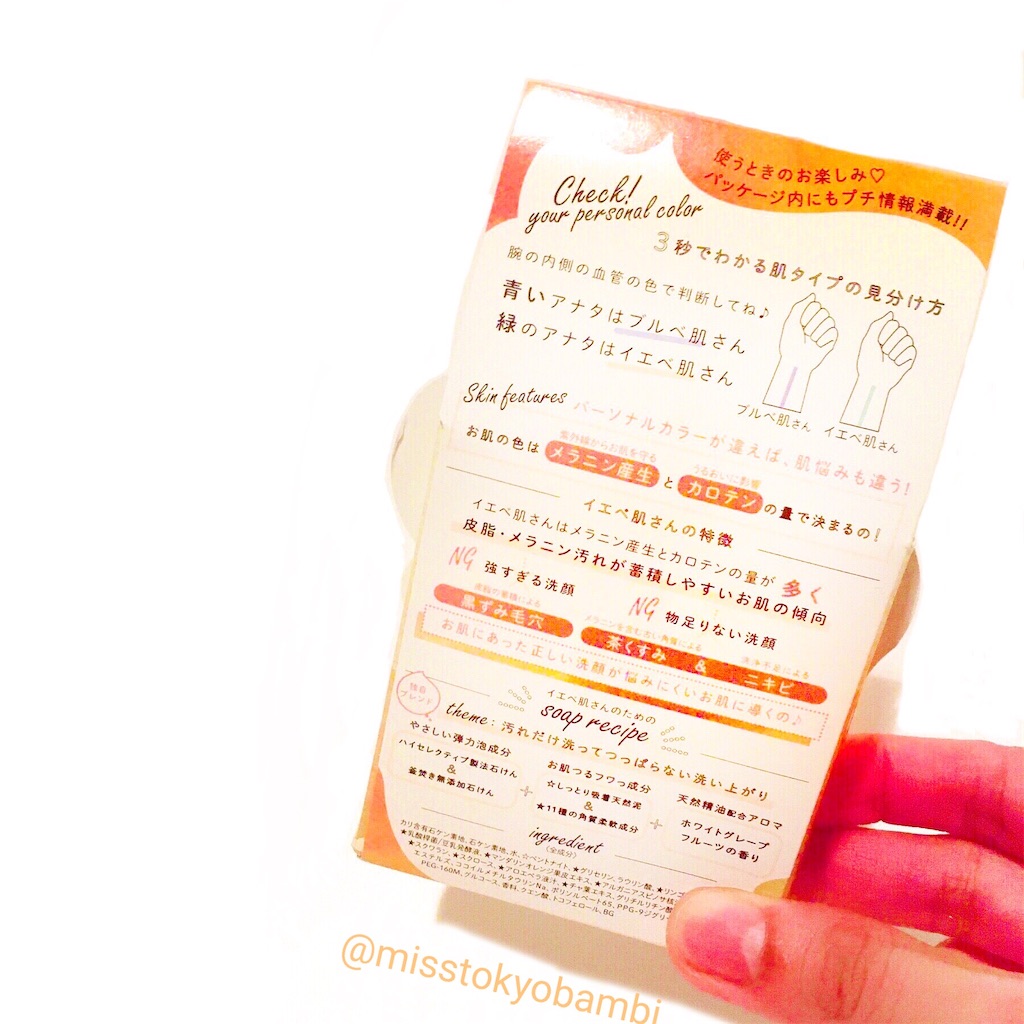 使うときのお楽しみ♡
パッケージ内にもプチ情報満載!!
Check!
your personal color
3秒でわかる肌タイプの見分け方
腕の内側の血管の色で判断してね♪
青いアナタはブルベ肌さん
緑のアナタはイエベ肌さん
ブルベ肌さん イエベ肌さん
Skin features
パーソナルカラーが違えば、肌悩みも違う!
紫外線からお肌を守る うるおいに影響
お肌の色はメラニン産生とカロテンの量で決まるの!
イエベ肌さんの特徴
イエベ肌さんはメラニン産生とカロテンの量が多く
皮脂・メラニン汚れが蓄積しやすいお肌の傾向
NG 強すぎる洗顔
NG 物足りない洗顔
皮脂の蓄積による
黒ずみ毛穴
メラニンを含む古い角質による 洗浄不足による
茶くすみ & ニキビ
お肌にあった正しい洗顔が悩みにくいお肌に導くの♪
独自
ブレンド
イエベ肌さんのための
soap recipe
theme:汚れだけ洗ってつっぱらない洗い上がり
やさしい弾力泡成分
ハイセレクティブ製法石けん
&
釜焚き無添加石けん
+
お肌つるフワっ成分
☆しっとり吸着天然泥
&
★11種の角質柔軟成分
+
天然精油配合アロマ
ホワイトグレープ
フルーツの香り
ingredient
(全成分)
カリ含有石ケン素地、石ケン素地、水、☆ベントナイト、★グリセリン、ラウリン酸、★リンゴ
★乳酸桿菌/豆乳発酵液、★マンダリンオレンジ果皮エキス、★アルガニアスピノサ核
★スクワラン、★スクロース、★アロエベラ液汁、★チャ葉エキス、グリチルリチン酸
エステルズ、ココイルメチルタウリンNa、ポリソルベート65、PPG-9ジグリ
PEG-160M、グルコース、香料、クエン酸、トコフェロール、BG
@misstokyobambi